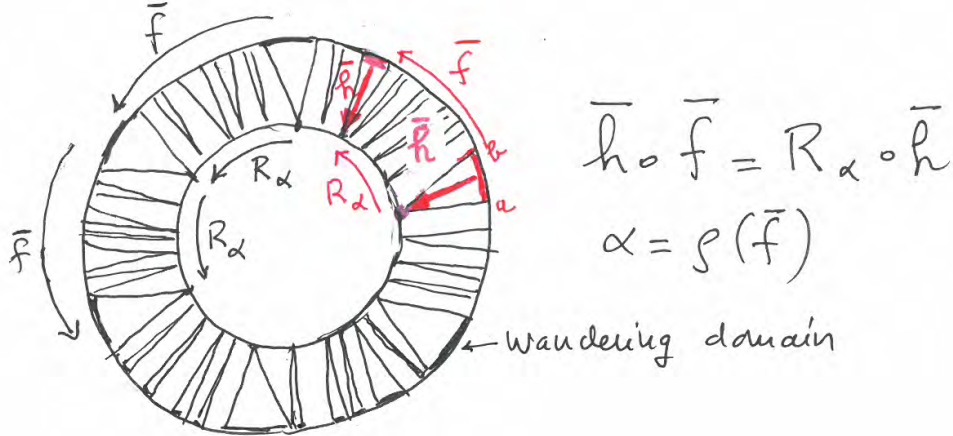 f̄
f̄
h̄
h̄
R_α
R_α
b
a
f̄
R_α
h̄ ∘ f̄ = R_α ∘ h̄
α = ρ(f̄)
wandering domain